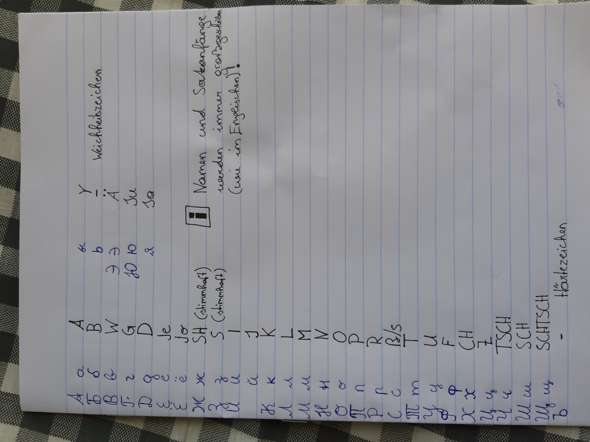 А а A ы Y
Б б B ь – Weichheitszeichen
В в W Э э Ä
Г г G Ю ю Ju
Д д D я Ja
Е е Je
Ё ё Jo
Ж ж SH (stimmhaft) i Namen und Satzanfänge
З з S (stimmhaft) werden immer großgeschrieben
И и I (wie im Englischen)!
й J
К к K
Л л L
М м M
Н н N
О о O
П п P
Р р R
С с ß/s
Т т T
У у U
Ф ф F
Х х CH
Ц ц Z
Ч ч TSCH
Ш ш SCH
Щ щ SCHTSCH
ъ – Härtezeichen